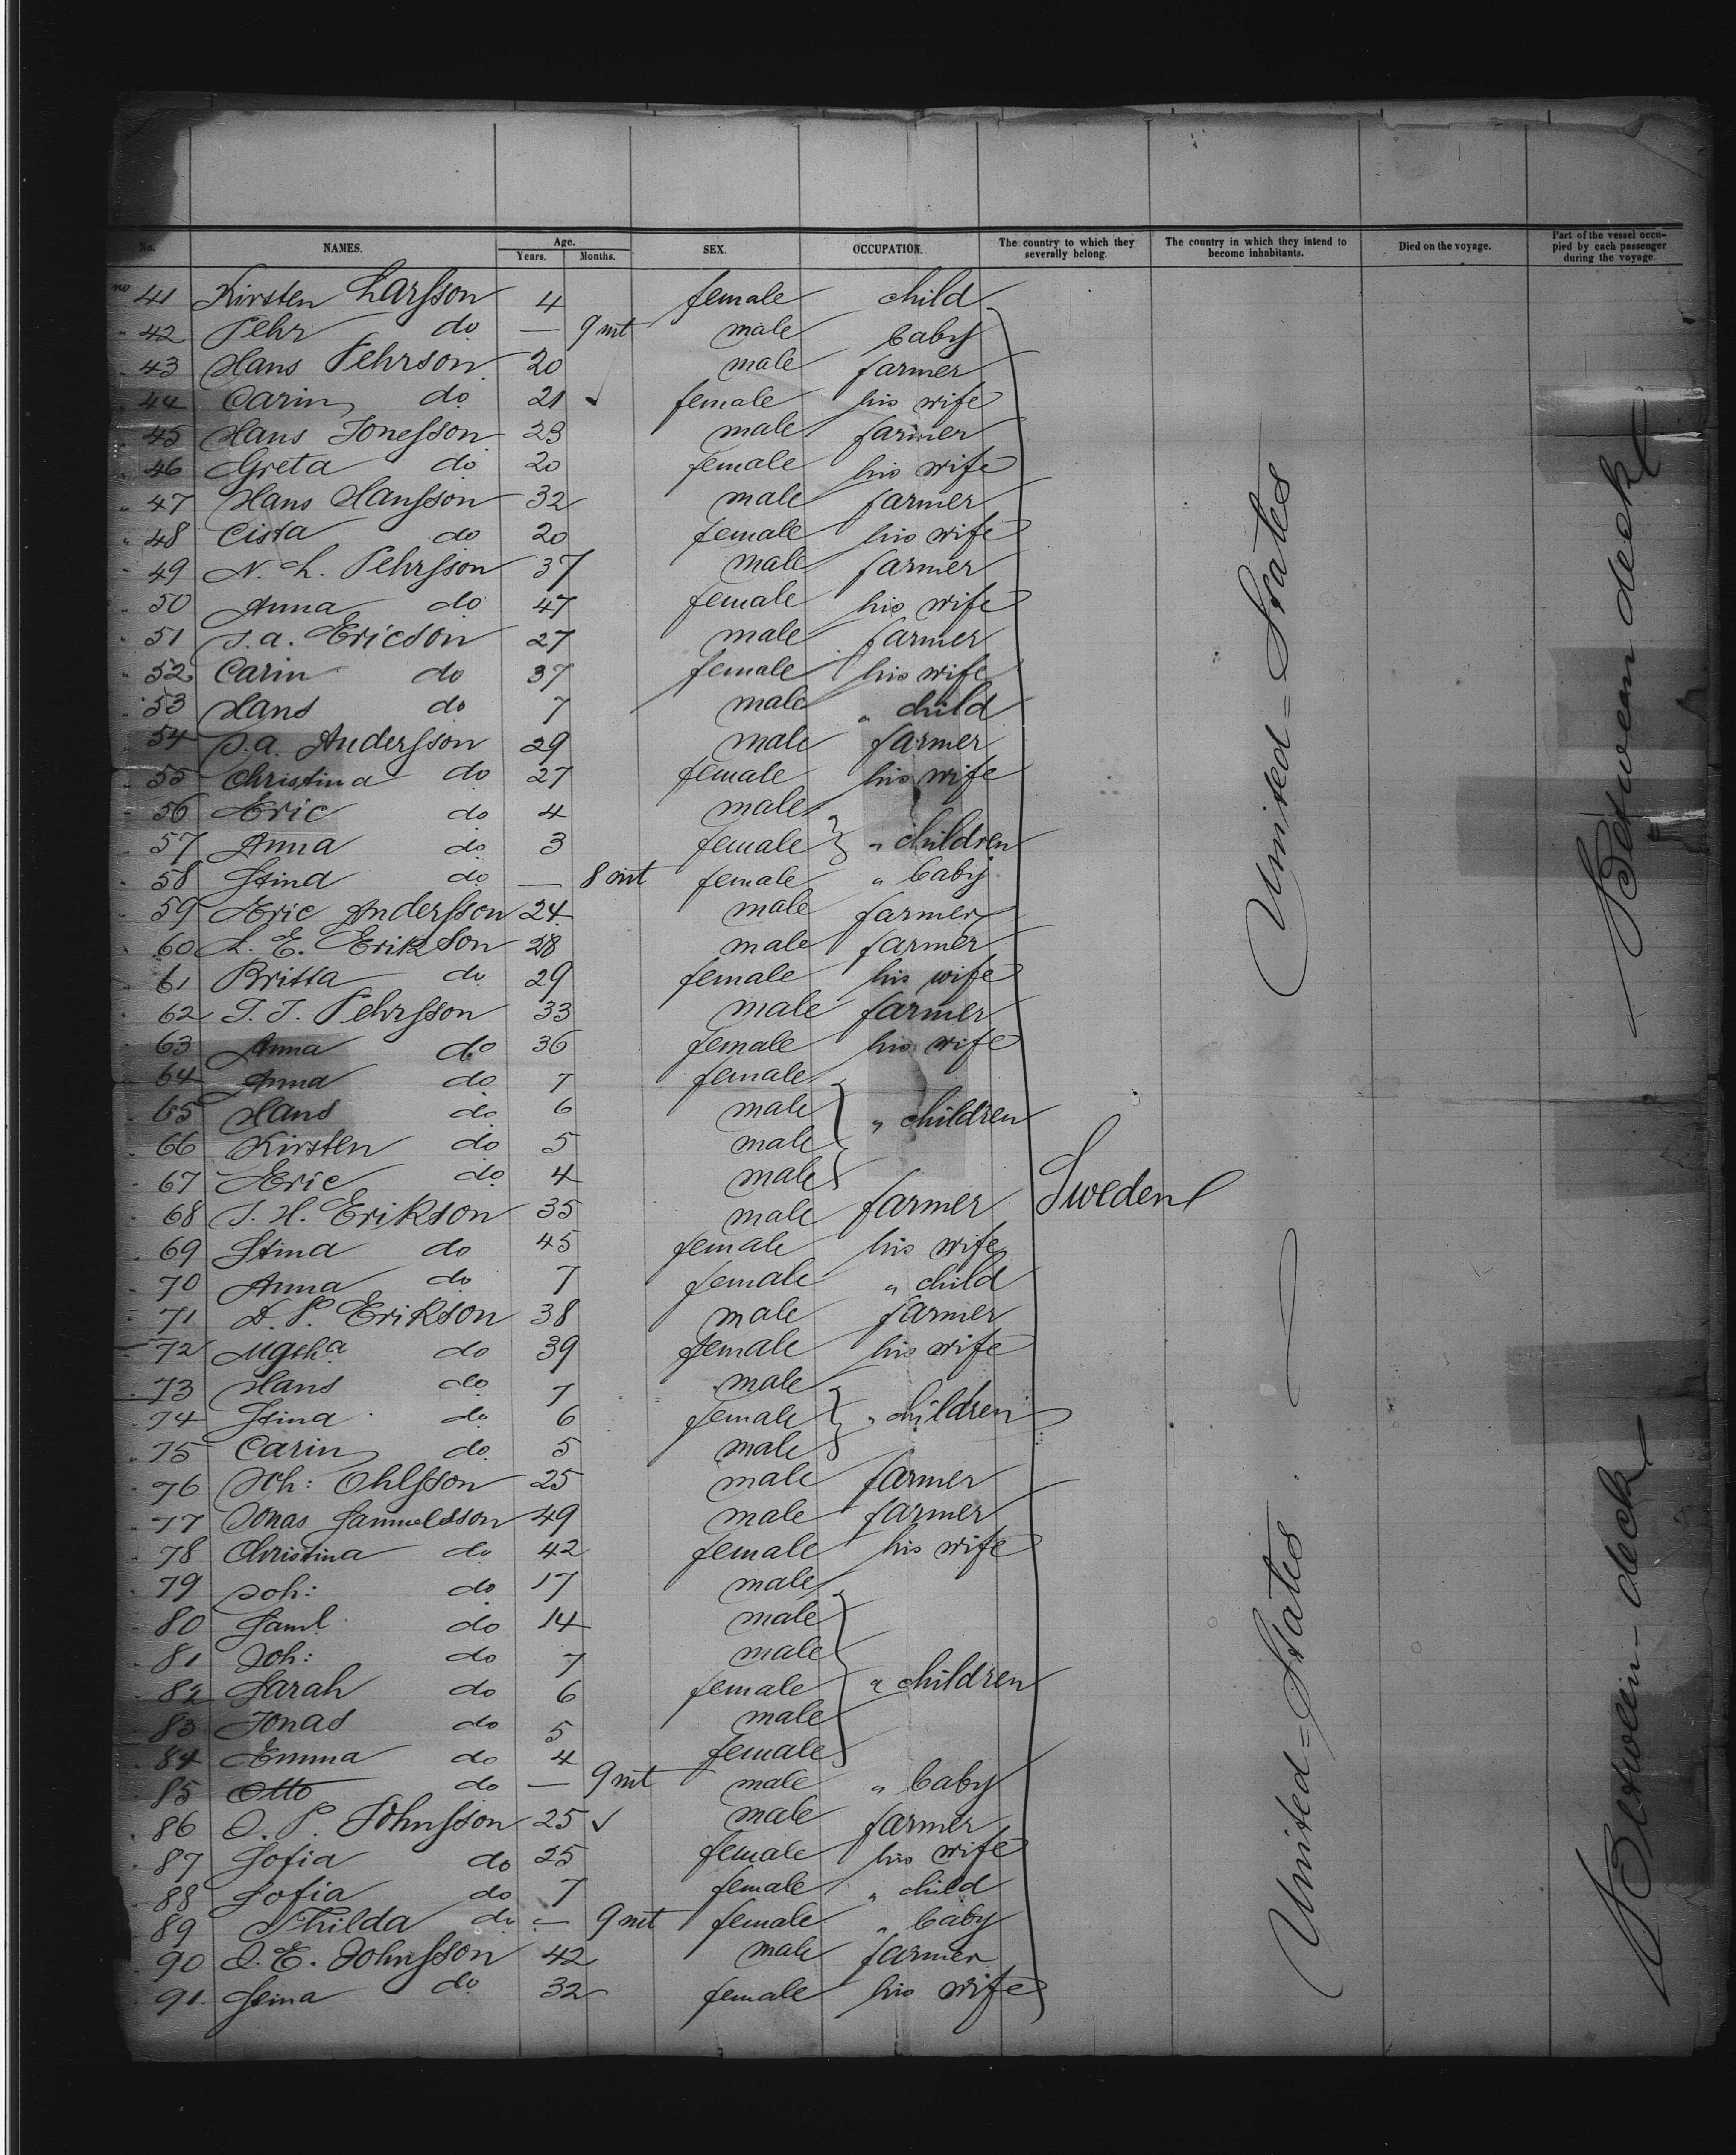 No. NAMES. Age. Years. Months. SEX. OCCUPATION. The country to which they severally belong. The country in which they intend to become inhabitants. Died on the voyage. Part of the vessel occupied by each passenger during the voyage.
no 41 Kirsten Larsson 4 female child
" 42 Pehr do — 9 mt male baby
" 43 Hans Pehrson 20 male farmer
" 44 Carin do 21 ✓ female his wife
" 45 Hans Jonesson 23 male farmer
" 46 Greta do 20 female his wife
" 47 Hans Hansson 32 male farmer
" 48 Cista do 20 female his wife
" 49 N. L. Pehrsson 37 male farmer
" 50 Anna do 47 female his wife
" 51 J. A. Ericson 27 male farmer
" 52 Carin do 37 female his wife
" 53 Hans do 7 male " child
" 54 J. A. Andersson 29 male farmer
" 55 Christina do 27 female his wife
" 56 Eric do 4 male
" 57 Anna do 3 female " children
" 58 Stina do — 8 mt female " baby
" 59 Eric Andersson 24 male farmer
" 60 L. E. Erikson 28 male farmer
" 61 Britta do 29 female his wife
" 62 J. J. Pehrsson 33 male farmer
" 63 Anna do 36 female his wife
" 64 Anna do 7 female
" 65 Hans do 6 male " children
" 66 Kirsten do 5 male
" 67 Eric do 4 male
" 68 J. H. Erikson 35 male farmer Sweden
" 69 Stina do 45 female his wife
" 70 Anna do 7 female " child
" 71 A. P. Erikson 38 male farmer
" 72 do 39 female his wife
" 73 Hans do 7 male
" 74 Stina do 6 female " children
" 75 Carin do 5 male
" 76 Joh: Ohlsson 25 male farmer
" 77 Jonas Samuelsson 49 male farmer
" 78 Christina do 42 female his wife
" 79 Joh: do 17 male
" 80 Saml do 14 male
" 81 Joh: do 7 male
" 82 Sarah do 6 female " children
" 83 Jonas do 5 male
" 84 Emma do 4 female
" 85 Otto do — 9 mt male " baby
" 86 O. P. Johnsson 25 ✓ male farmer
" 87 Sofia do 25 female his wife
" 88 Sofia do 7 female " child
" 89 Thilda do — 9 mt female " baby
" 90 O. E. Johnsson 42 male farmer
" 91. Stina do 32 female his wife
United = States
United = States
Between deck
Between - deck